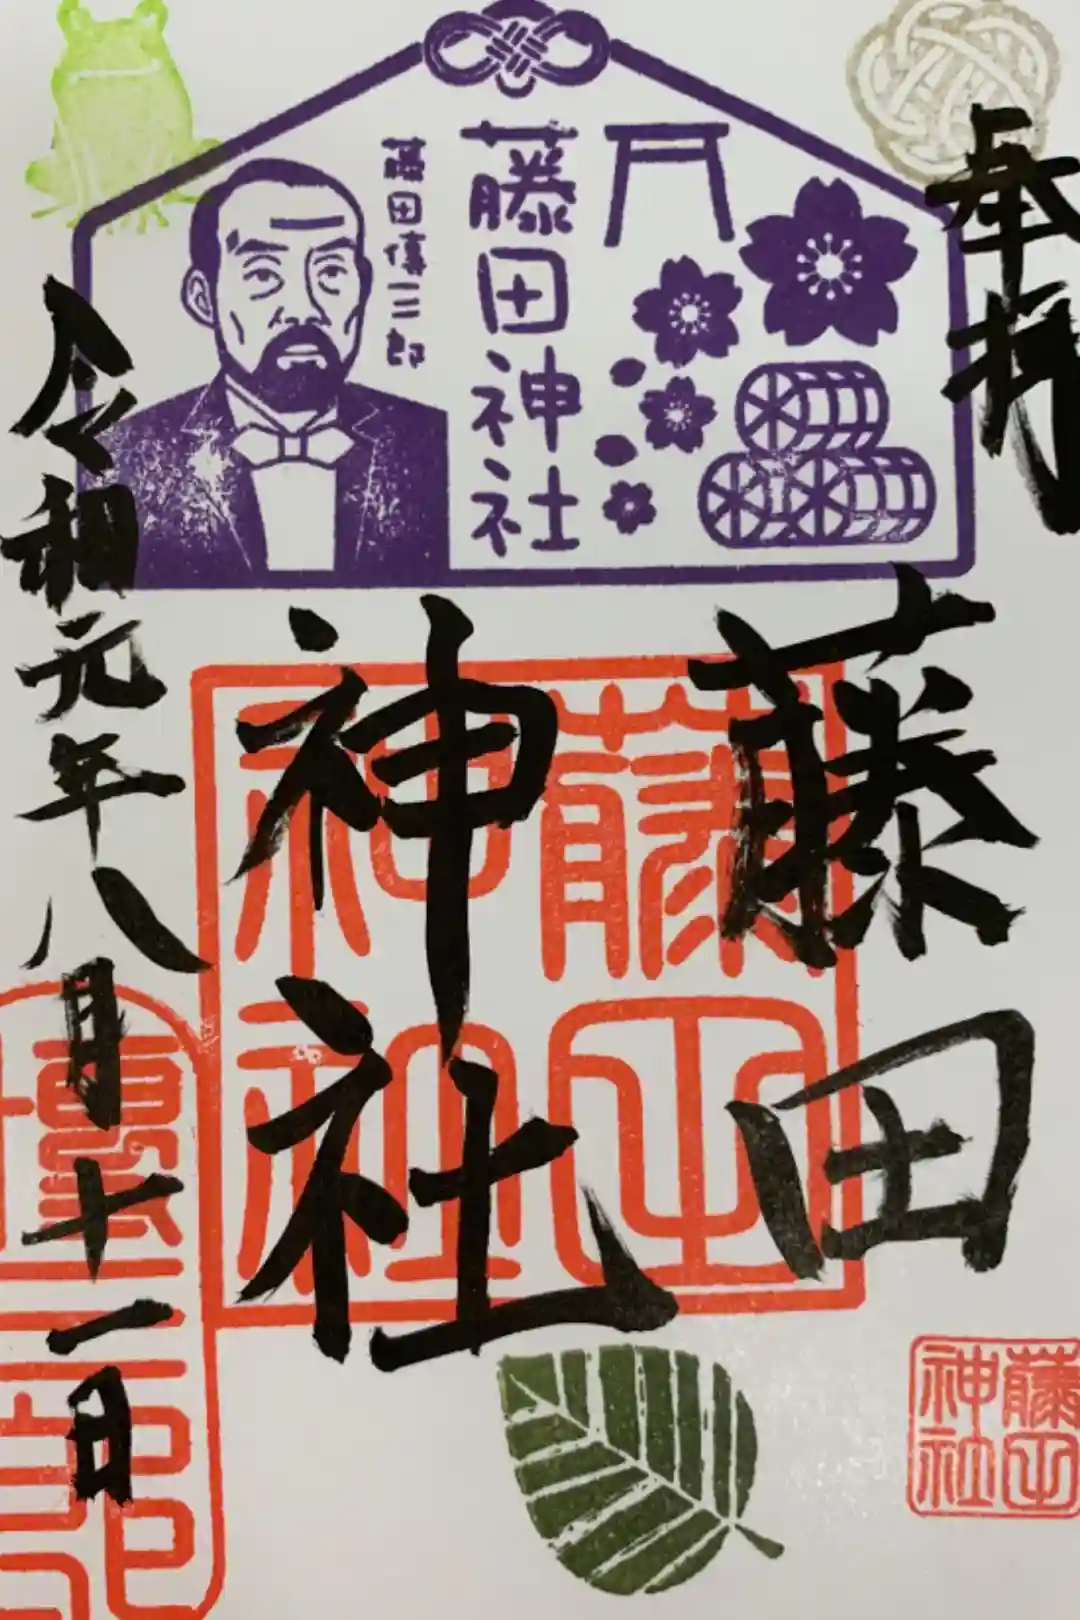 奉拝
藤田
神社
令和元年八月十一日
藤田神社
藤田傳三郎
藤田神社
藤田神社